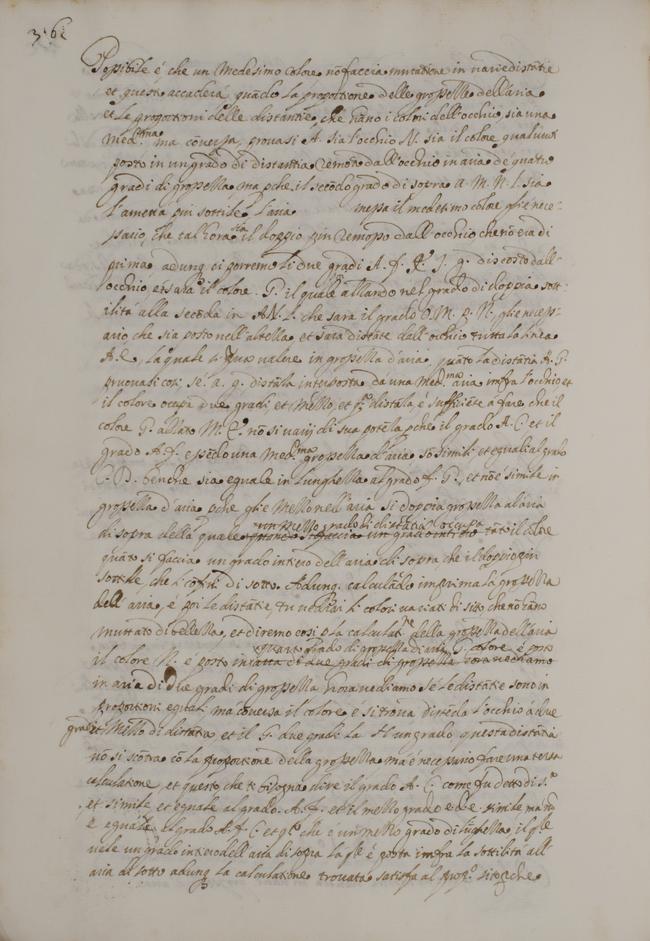 Possibile é che un Medesimo colore nõ faccia mutatione in varie distãtie
et questo accaderà quãdo la proportione delle grossezze dell'aria
et le proportioni delle distantie, che hãno i colori dell'occhio, sia una
med.ma ma cõversa, provasi A. sia l'occhio N. sia il colore qual
posto in un grado di distantia remota dall'occhio in aria de quatro
gradi di grossezza, ma pche il secõdo grado di sopra a. M. N. l. sia
l'ametà piu sottile l'aria messa il medesimo colore gli è nece-
ssario, che tal'hora sia il doppio piu remoto dall'occhio che nõ era di
prima, adunq. ci porremo li due gradi A. f. discosto dall-
occhio, et sarà il colore. G. il quale alzando nel grado di doppia sott-
ilità alla secõda in A N. L. che sarà il grado O. M. p. N. gli è necess-
ario, che sia posto nell'altezza et sarà distãte dall'occhio tutta la linea
A. e, la quale si prova valere in grossezza d'aria, quãto la distãtia A. G.
provasi cosi, sé a. g. distãtia interposta da una med.ma aria infra l'occhio et
il colore occupa due gradi et Mezzo, et distãtia è suffitiẽte a fare che il
colore G. alzato nõ si varij di sua potẽtia pche il grado A. C. et il
grado A. f. essẽdo una med.ma grossezza d'aria sõ simili et equali al grado
C. D. benche sia equale in lunghezza al grado f. G. et nõ è simile in
grossezza d'aria pche gli è Mezzo nell'aria di doppia grossezza all'aria
di sopra della quale un mezzo grado di distãtia occupa tãto il colore
quãto si faccia un grado intero dell'aria di sopra che il doppio piu
sottile, che confini di sotto. Adunq. calculãdo imprima la grossezza
dell'aria, é poi le distãtie, tu vedrai li colori variati di sito, che nõ hãno
muttato di bellezza, et diremo cosi p la calculat.ne della grossezza dell'aria
il colore N. è posto in quatro gradi di grossezza d'aria G. colore è posto
in aria di due gradi di grossezza hora vediamo sé le distãtie sono in
proportioni eguali ma cõversa il colore e si trova distẽte l'occhio a due
gradi et Mezzo di distãtia et il G. due gradi la H un grado questa distãtia
nõ si scõtra cõ la proportione della grossezza, ma é necessario fare una terza
calculatione, et questo, che ti bisogna dire il grado A. C. come fu detto di s.a
et simile et eguale al grado. A. f. et il mezzo grado e b è simile ma nõ
è eguale al grado A. f. C. et che è un mezzo grado di lũghezza, il
vale un grado intero dell'aria di sopra la è posta infra la sottilità all'
aria di sotto adunq. la calculatione trovata satisfa al sito